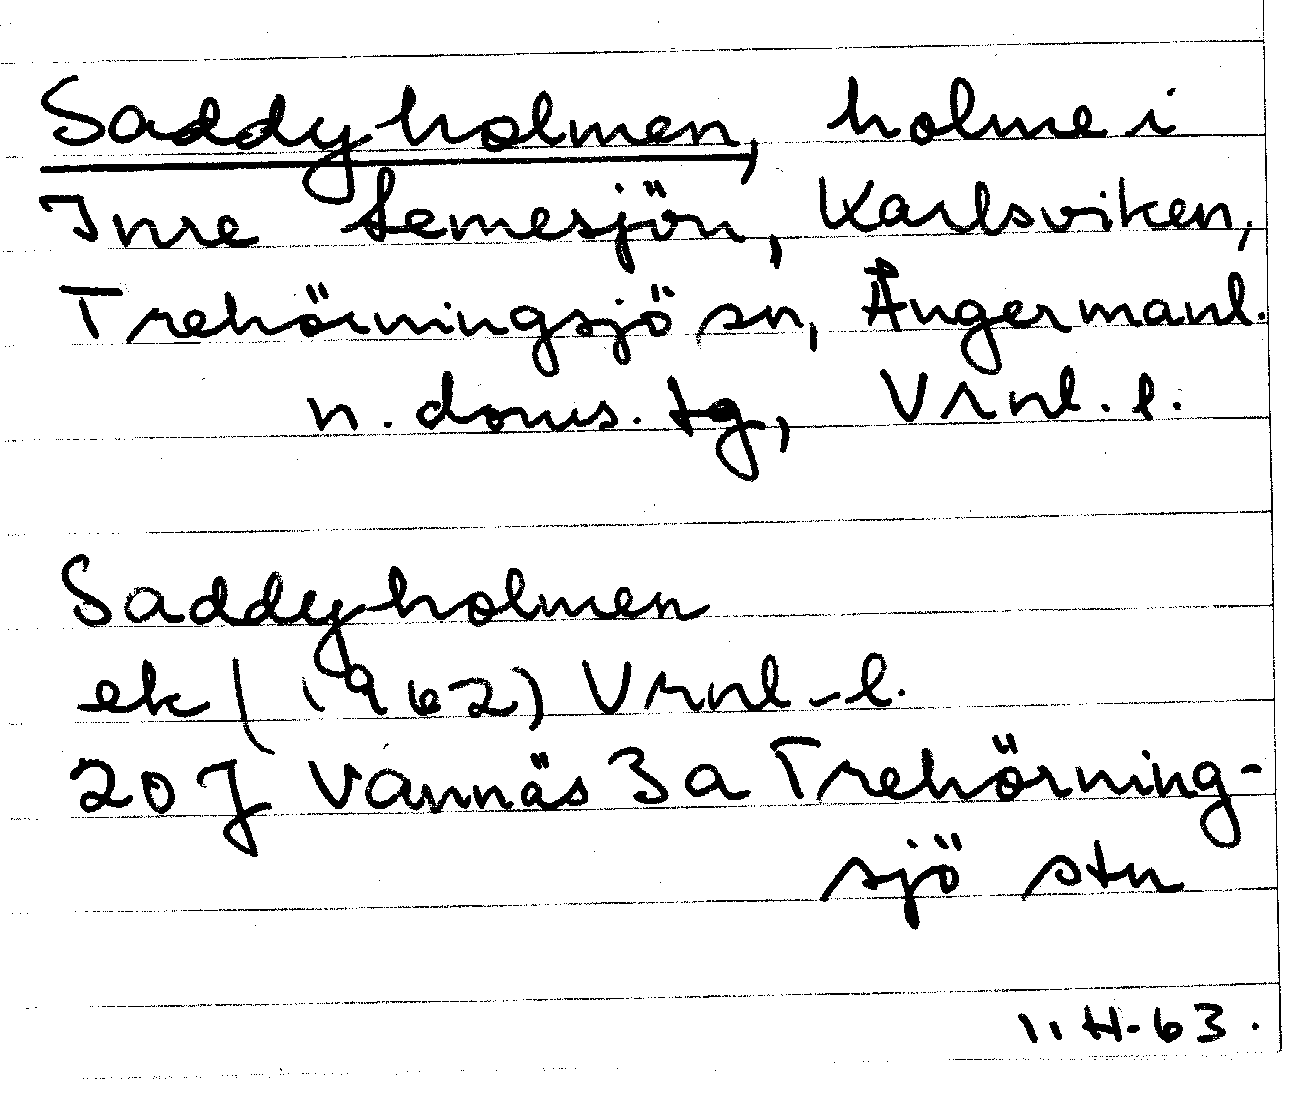 Saddyholmen, holme i
Inre Lemesjön, Karlsviken,
Trehörningsjö sn, Ångermanl.
n. doms. tg, Vrnl. l.
Saddyholmen
ek (1962) Vrnl-l.
20 J Vännäs 3 a Trehörning-
sjö stn
I. H-63.